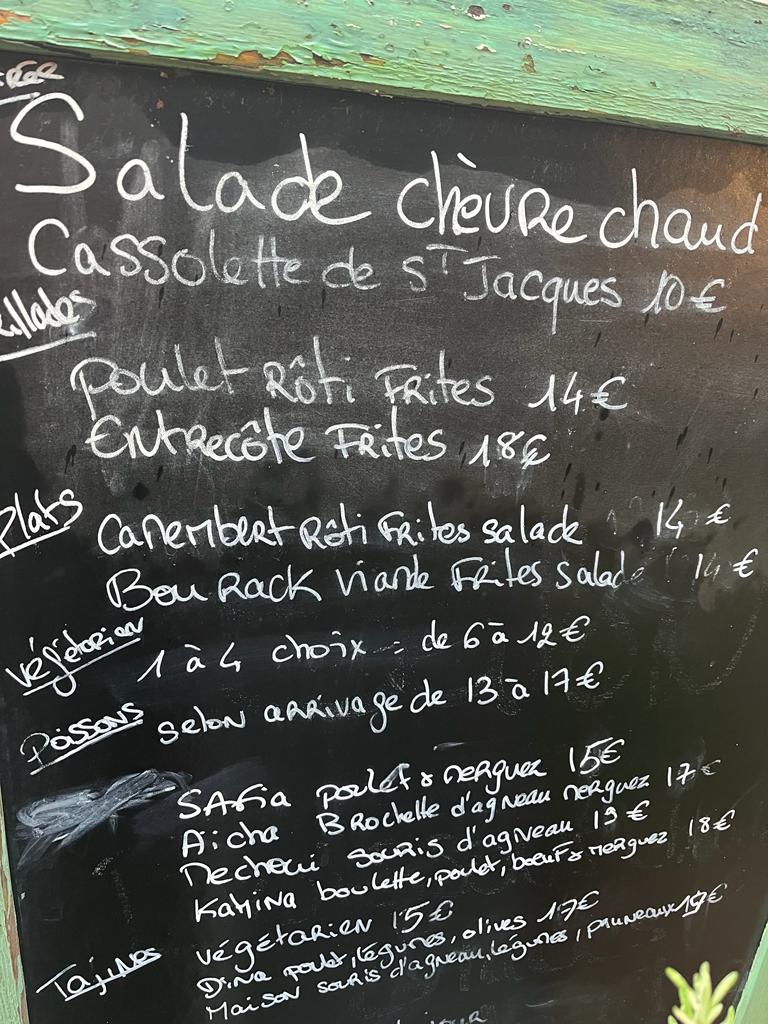 Salade chèvre chaud
Cassolette de ST Jacques 10€
Poulet Rôti Frites 14€
Entrecôte Frites 18€
Plats Camembert Rôti Frites salade 14€
Bourack viande Frites salade 14€
Végétarien 1 à 4 choix = de 6 à 12€
Poissons selon arrivage de 13 à 17€
SAFia poulet & merguez 15€
Aïcha Brochette d'agneau merguez 17€
Mechoui souris d'agneau 19€
Kamina boulette, poulet, boeuf & merguez 18€
Tajines végétarien 15€
Dina poulet, légumes, olives 17€
Maison souris d'agneau, légumes, pruneaux 19€